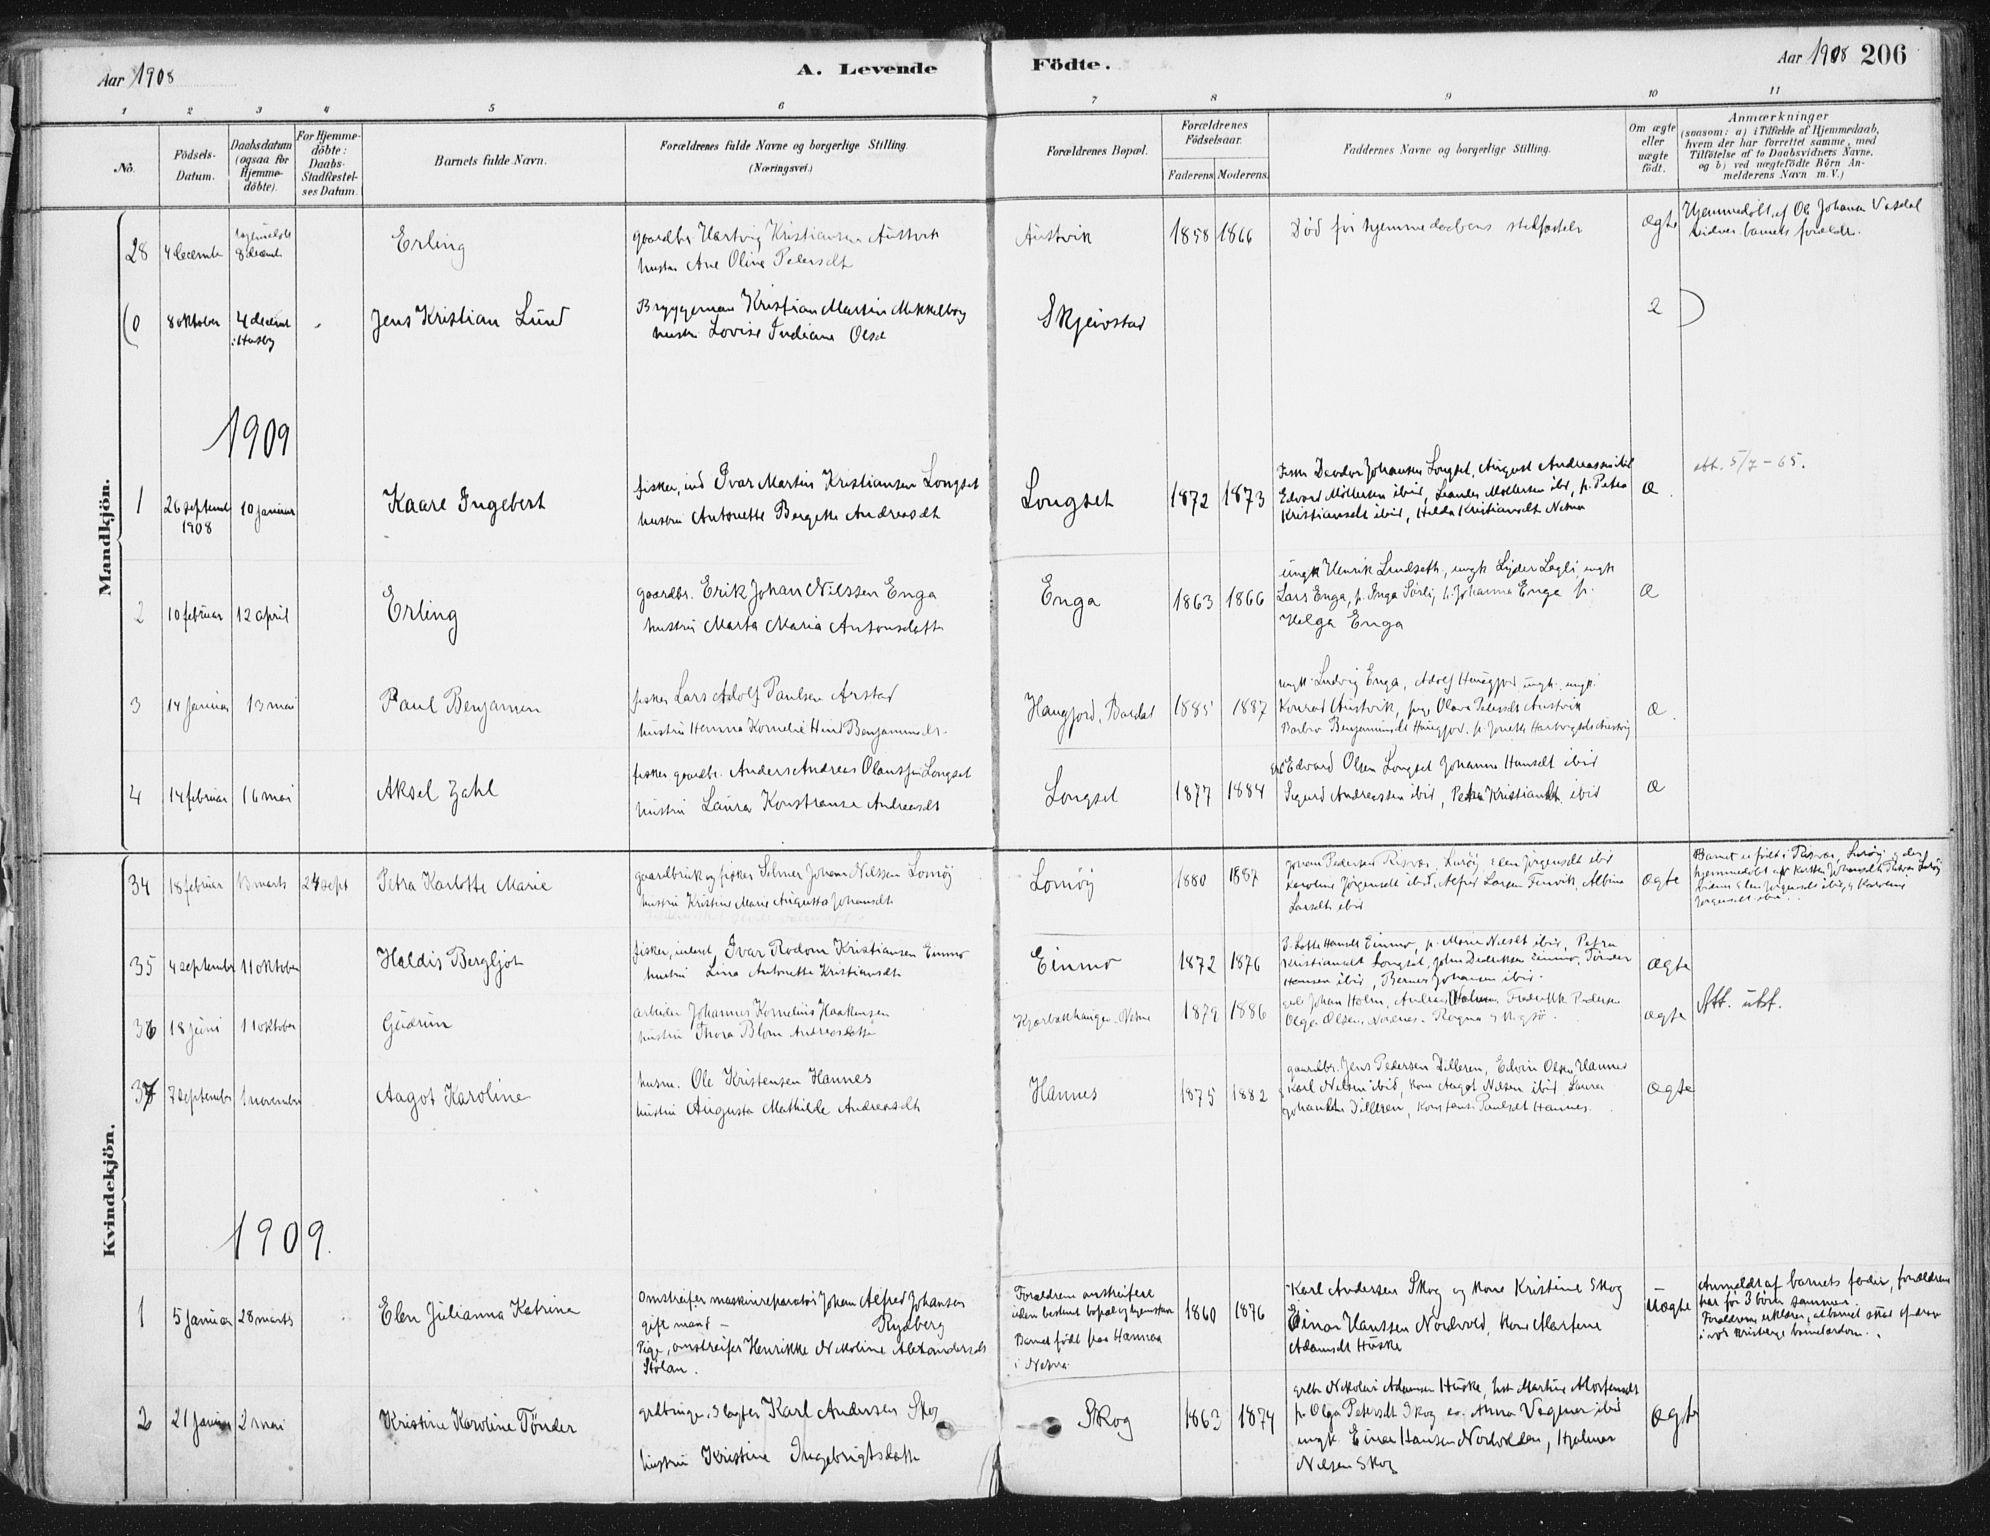 Aar 1908
A. Levende Födte.
Aar 1908 206
1 2 3 4 5 6 7 8 9 10 11
No.
Födsels-Datum.
Daabsdatum (ogsaa for Hjemme-döbte).
For Hjemme-döbte: Daabs-Stadfæstel-ses Datum.
Barnets fulde Navn.
Forældrenes fulde Navne og borgerlige Stilling.
(Næringsvei.)
Forældrenes Bopæl.
Forældrenes Födselsaar.
Faderens. Moderens.
Faddernes Navne og borgerlige Stilling.
Om ægte eller uægte födt.
Anmærkninger
(saasom: a) i Tilfælde af Hjemmedaab,
hvem der har forrettet samme, med
Tilföielse af to Daabsvidners Navne,
og b) ved uægtefödte Börn An-
melderens Navn m. V.)
Mandkjön.
28 4 december 8 decemb Erling
gaardbr Hartvig Kristiansen Austvik
hustru Ane Oline Pedersdt
Austvik 1858 1866 Död för hjemmedaabens stadfæstelse ægte
Hjemmedöbt af Ole Johansen
vidner barnets forældre.
(0 8 oktober 4 decemb i Husby Jens Kristian Lund
Bryggeman Kristian Martin Mekkelborg
hustru Lovise Indiane Olsd
Skjeivstad 2 )
1909
1 26 septemb 1908 10 januar Kaare Ingebert
fisker, ind Ivar Martin Kristiansen Longset
hustru Antonette Bergette Andreasdt
Longset 1872 1873
Johansen Longset, August Andreassen ibid
Edvard Möllersen ibid, Leander Möllersen ibd, p. Petra
Kristiansdt ibid, Hilda Kristiansdt Nesna
æ.
att. 5/7-65.
2 10 februar 12 april Erling
gaardbr. Erik Johan Nilssen Enga
hustru Marta Maria Antonsdatte
Enga 1863 1866
ungk Henrik Lindseth, ungk Lyder Lagli, ungk
Lars Enga, p. Inga Sörli, p. Johanna Enga p.
Helga Enga
æ
3 14 januar 13 mai Paul Benjamin
fisker Lars Adolf Paulsen Arstad
hustru Hanna Kornelie Benjaminsdr.
Haugfjord, Bardal 1885 1887
ungk. Ludvig Enga, Adolf Haugfjord ungk. ungk.
Konrad Austvik, pige Olava Pedersdt Austvik
Barbro Benjaminsdt Haugfjor. p.
æ.
4 14 februar 16 mai Aksel Zahl
fisker gaardbr. Anders Andreas Longset
hustru Laura Konstanse Andreasdt
Longset 1877 1884
Edvard Olsen Longset Johanna Hansdt ibid
Sigurd Andreassen ibid, Petra Kristiansdt. ibid
æ
Kvindekjön.
34 18 februar 13 marts 24 sept Petra Karlotte Marie
gaardbruk og fisker Selmer Johan Nilssen Lomöy
hustru Kristine Marie Augusta Johansdt
Lomöy 1880 1887
Johan Pedersen Risvær, Luröy, Elen Jörgensdt ibid
Karoline Jörgensdt ibid, Alfred Larsen Finvik, Albine
Larsdt ibid
ægte
Barnet er födt i Risvær, Luröy og der
hjemmedöbt af Johansdt Risvær Luröy
vidner Elen Jörgensdt ibid, og Karoline
Jörgensdt ibid.
35 4 september 11 oktober Haldis Bergljot
fisker, inderst, Ivar Rodom Kristiansen Einmo
hustru Lina Antonette Kristiansdt
Einmo 1872 1876
Lotte Hansdt Einmo, p. Marie Nilsdt ibid, Petra
Kristiansdt Longset, John Dedriksen Einmo, Tönder
Hansen ibid, Bernes Johansen ibid.
ægte
36 18 juni 11 oktober Gudrun
arbeider Johannes Kornelius Haakensen
hustru Thora Blom Andreasdatte
Nesna 1879 1886
Johan Holm, Andreas Fredrikk Pedersen
Olga Olsen, Nordnes - Ragna
ægte Att. utst.
37 7 september 1 november Aagot Karoline
husm. Ole Kristensen Hannes
hustru Augusta Mathilde Andreasdt
Hannes 1875 1882
gaardbr. Jens Pedersen Dilleren, Edvin Olsen Hannes
Karl Nilsen ibid, kone Aagot Nilsen ibid, Laura
Johansdtr Dilleren, Konstanse Paulsdt Hannes.
ægte
1909.
1 5 januar 28 marts Elen Julianna Katrina
Omstreifer maskinreparatör Johan Alfred Johansen
gift mand - Rydberg
Pige, omstreifer Henrikke N Moline Alexandersdt
Stolan.
Forældrene omstreifere
uden bestemt bopæl og hjemstavn
Barnet födt paa Hannes
i Nesna.
1860 1876
Karl Andersen Skog og kone Kristine Skog
Einar Hanssen Nordvold, kone Martine
Adamsdt Huske
uægte
Anmeldt af barnets fader, forældrene
har för 3 börn sammen.
Forældrene erklærer, at barnet skal opdrages
i vor kristelige barnelærdom.
2 21 januar 2 mai Kristine Karoline Tönder
Karl Andersen Skog
hustru Kristine Ingebrigtsdatte
Skog 1863 1874
grbr Nikolai Adamsen Huske, hst Martine Mortensdt
p. Olga Petersdt Skog Anna Vagner ibid
ungk. Einar Hansen Nordvolden, Hjalmar
Nilsen Skog
ægte